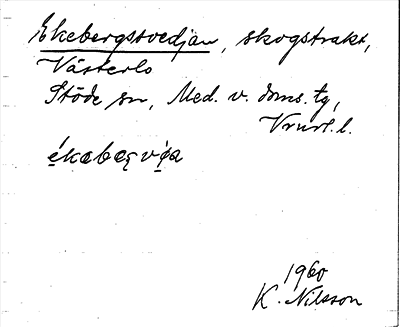 Ekebergstvedjan, skogstrakt,
Västerlo
Stöde sn, Med. v. doms. tg,
Vrnrl. l.
ékabærvéa
1960
K. Nilsson